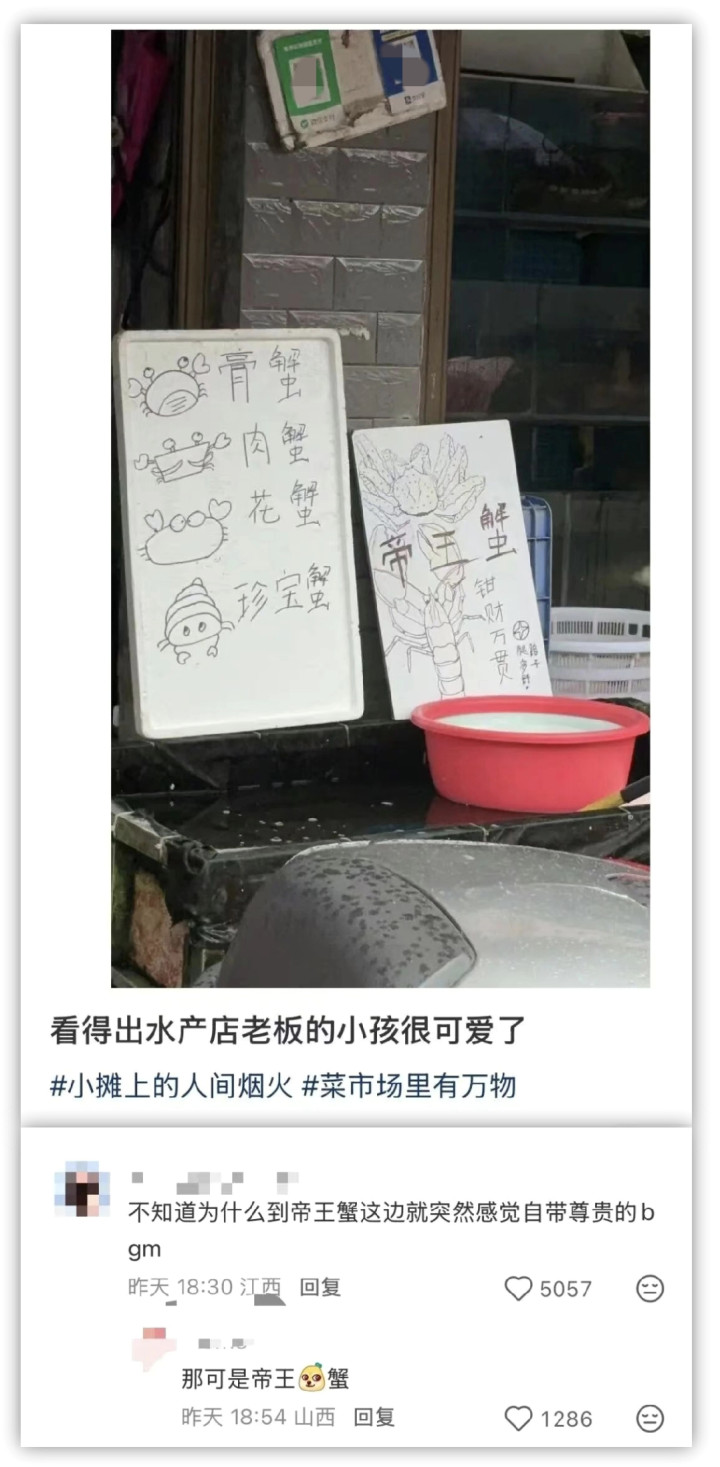 膏蟹
肉蟹
花蟹
珍宝蟹
帝王蟹
钳财万贯
看得出水产店老板的小孩很可爱了
#小摊上的人间烟火 #菜市场里有万物
不知道为什么到帝王蟹这边就突然感觉自带尊贵的b
gm
昨天 18:30 江西 回复
5057
那可是帝王蟹
昨天 18:54 山西 回复
1286